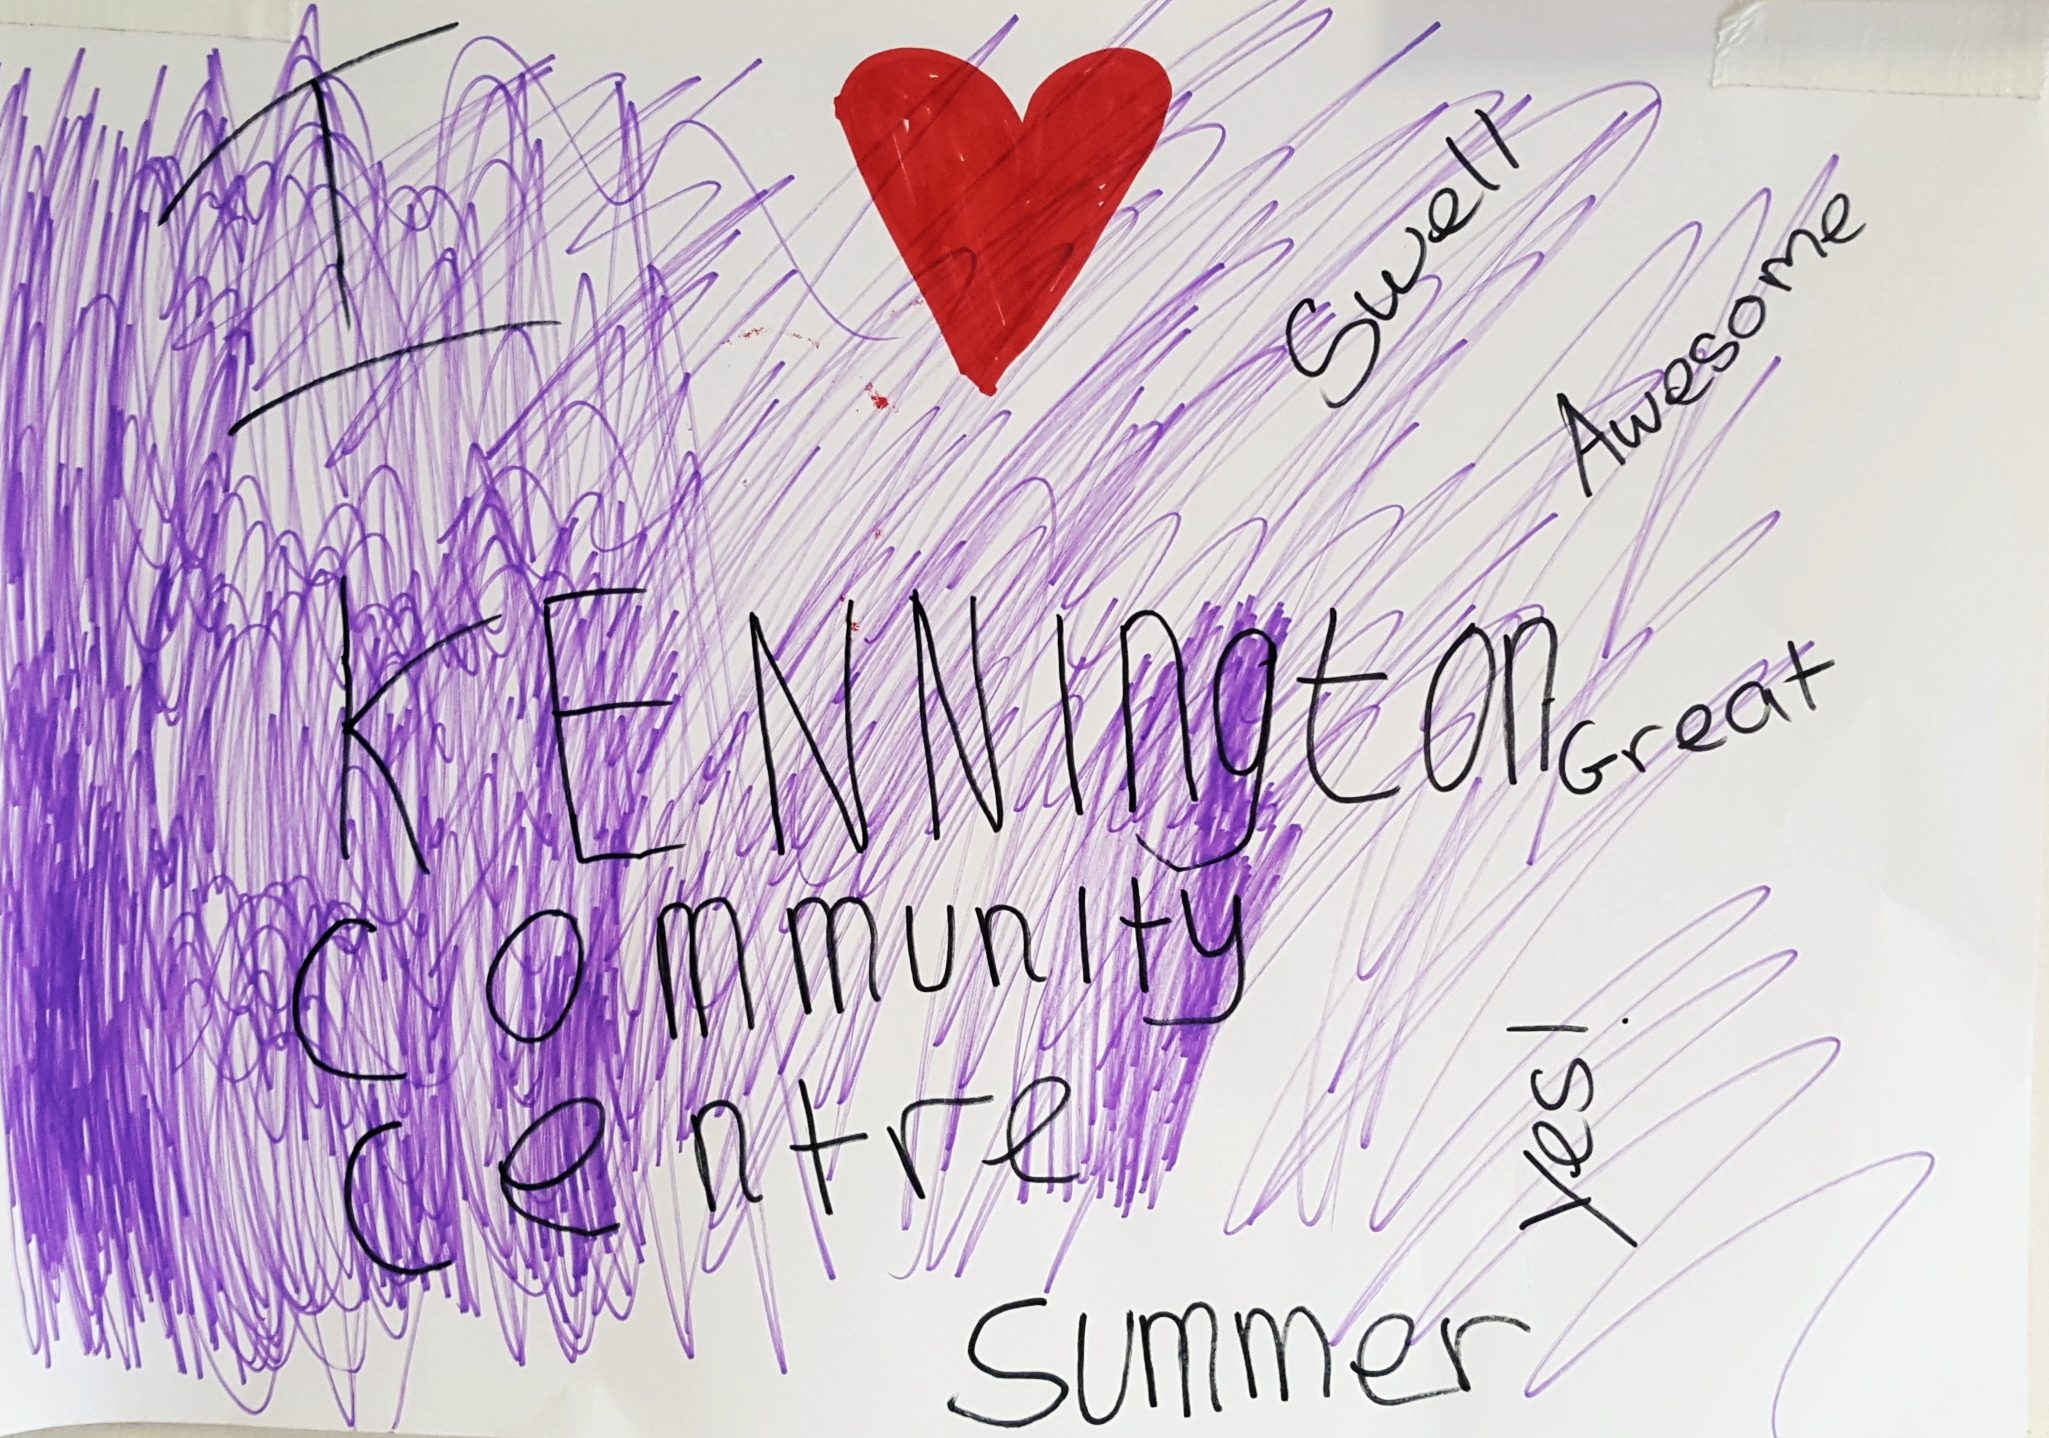 I
KENNington
Community
Centre
Swell
Awesome
Great
Yes!
Summer